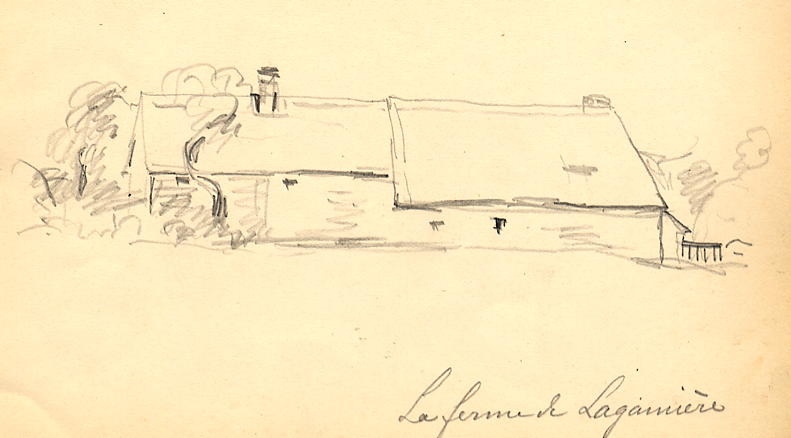 La ferme de Lagainière